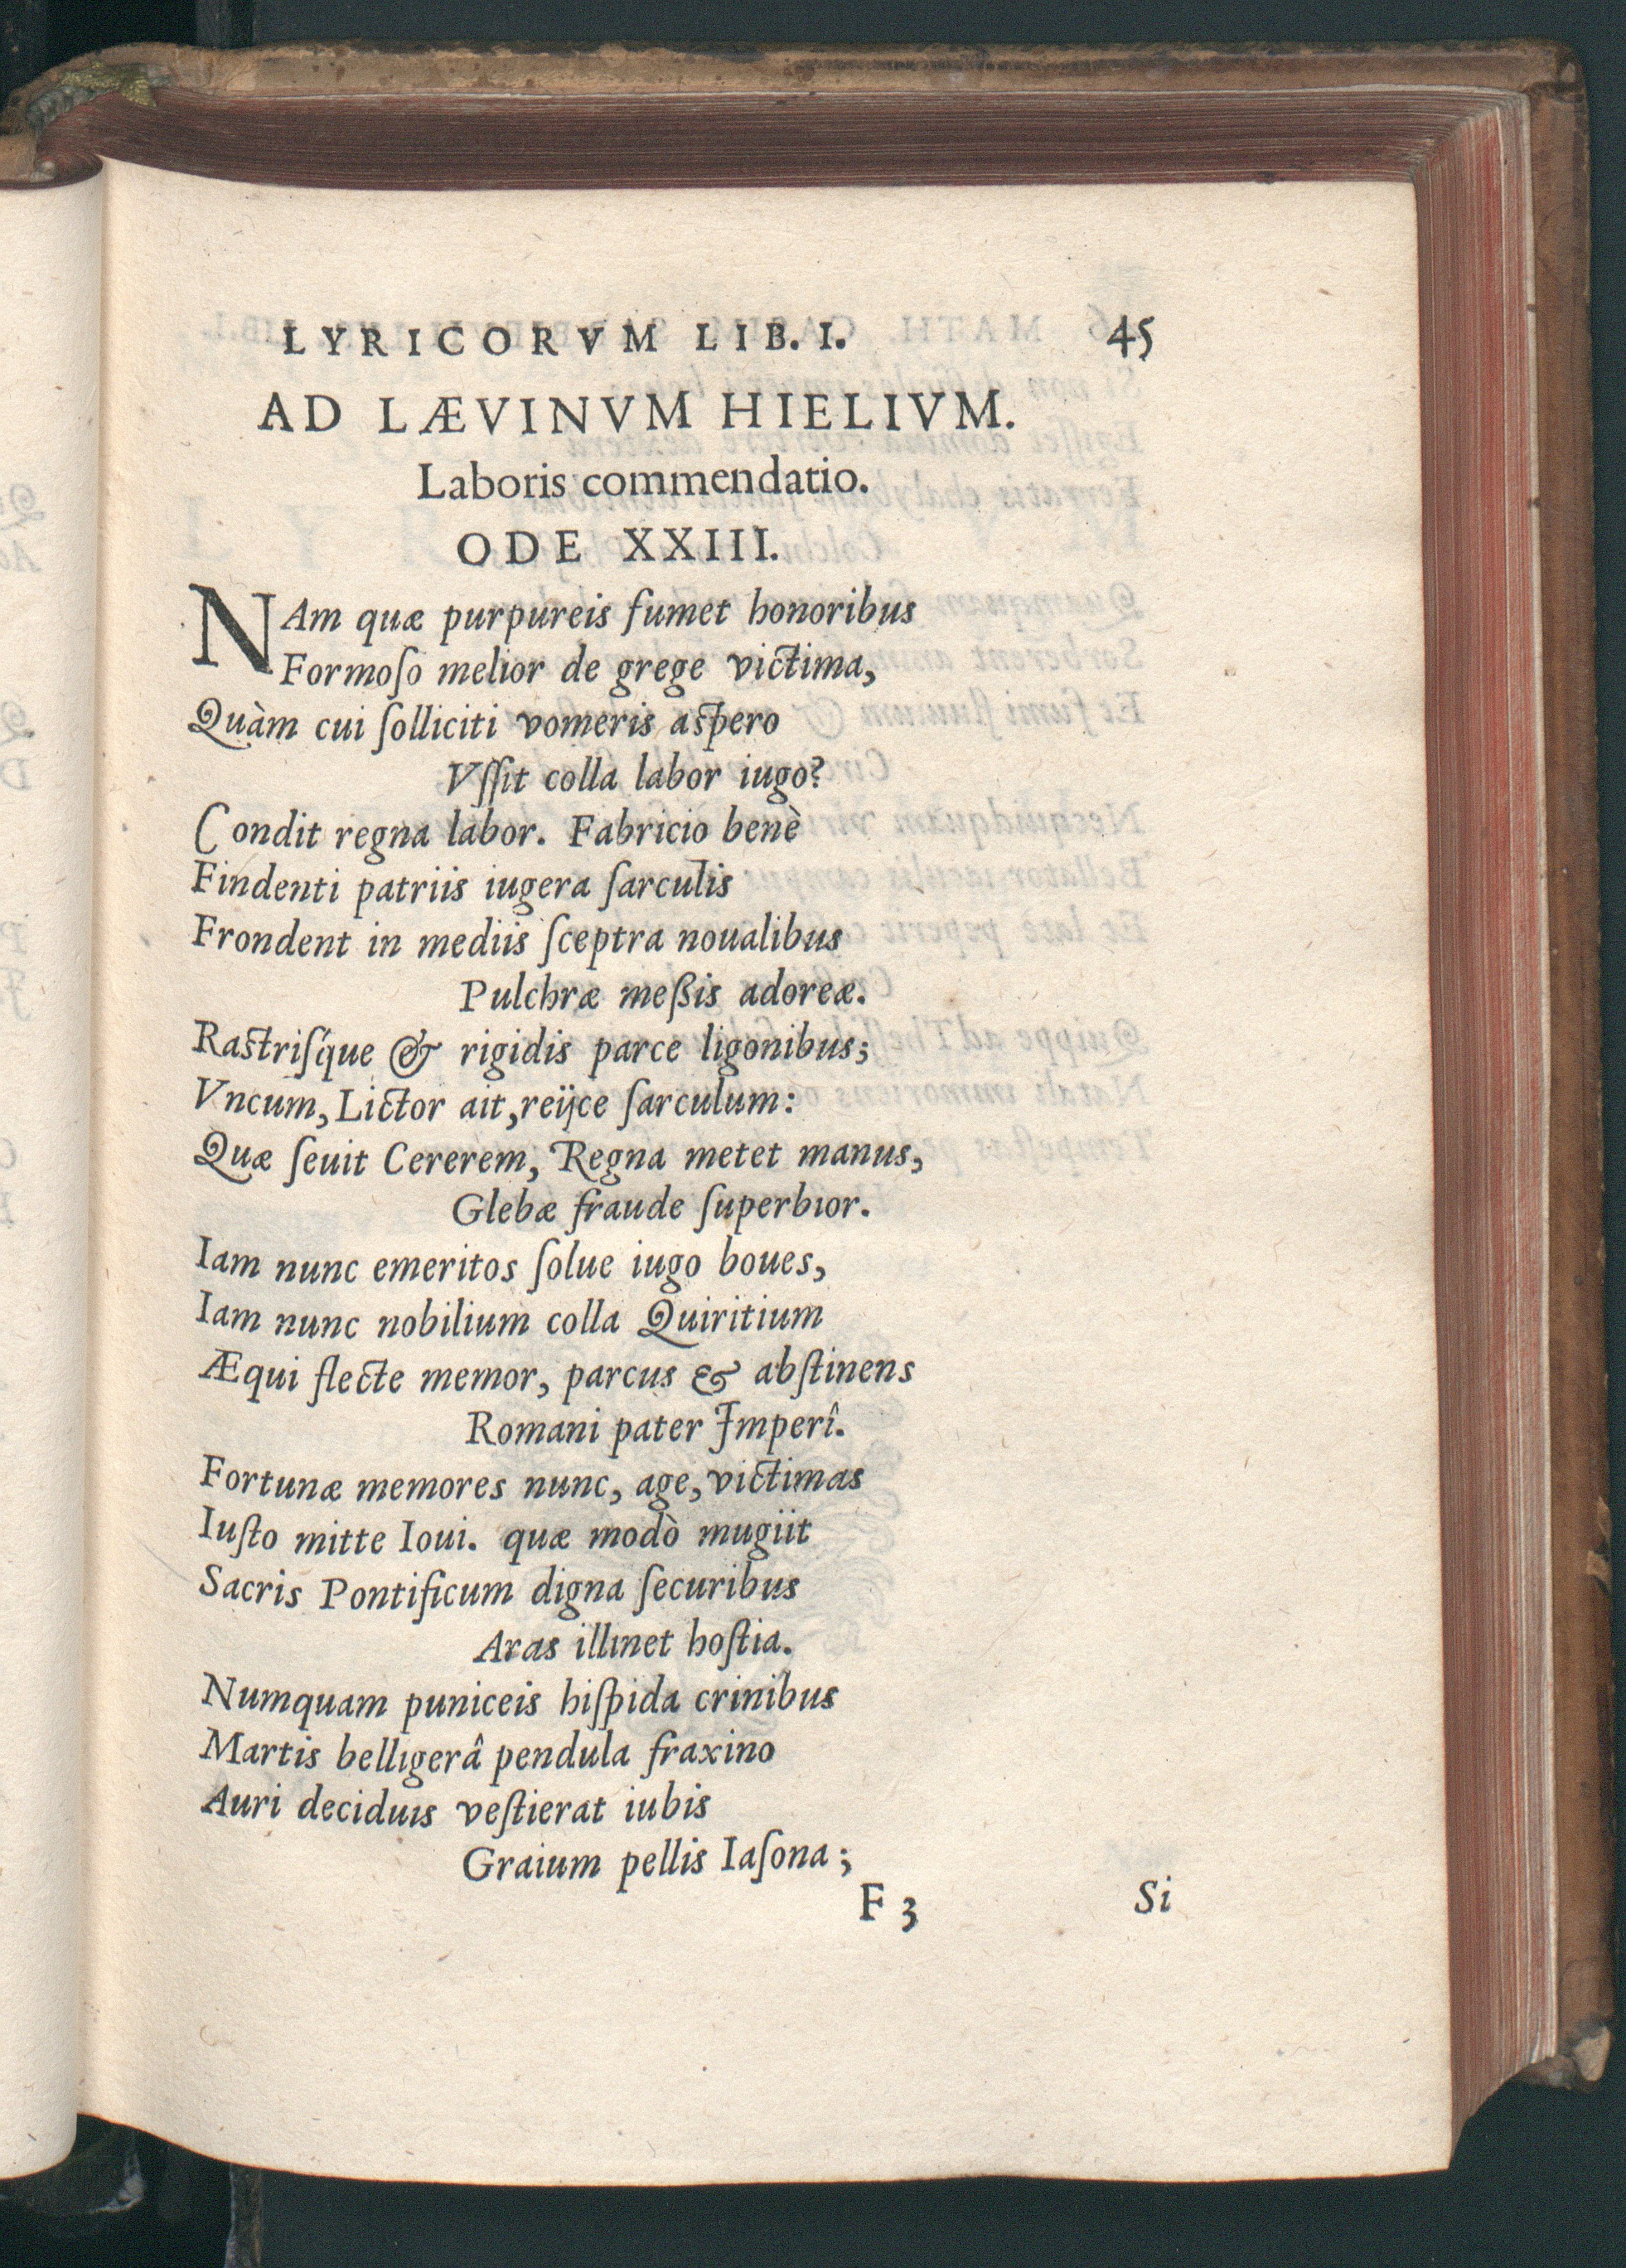 LYRICORVM LIB. I. 45
AD LÆVINVM HIELIVM.
Laboris commendatio.
ODE XXIII.
NAm quæ purpureis fumet honoribus
Formoſo melior de grege victima,
Quàm cui ſolliciti vomeris aſpero
Vſſit colla labor iugo?
Condit regna labor. Fabricio benè
Findenti patriis iugera ſarculis
Frondent in mediis ſceptra noualibus
Pulchræ meßis adoreæ.
Raſtriſq́ue & rigidis parce ligonibus;
Vncum, Lictor ait, reijce ſarculum:
Quæ ſeuit Cererem, Regna metet manus,
Glebæ fraude ſuperbior.
Iam nunc emeritos ſolue iugo boues,
Iam nunc nobilium colla Quiritium
Æqui flecte memor, parcus & abſtinens
Romani pater Imperî.
Fortunæ memores nunc, age, victimas
Iuſto mitte Ioui. quæ modò mugiit
Sacris Pontificum digna ſecuribus
Aras illinet hoſtia.
Numquam puniceis hiſpida crinibus
Martis belligerâ pendula fraxino
Auri deciduis veſtierat iubis
Graium pellis Iaſona;
F 3 Si